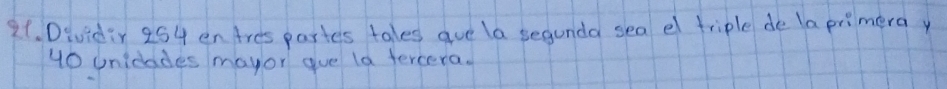 21. Dividir 254 en tres partes tales que la segunda sea el triple de la primera y
40 unidades mayor que la tercera.